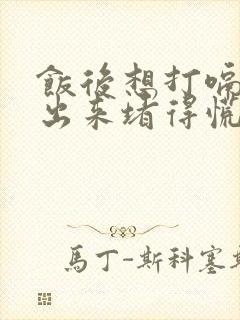 飯後想打嗝
出来堵得慌
馬丁-斯科塞斯